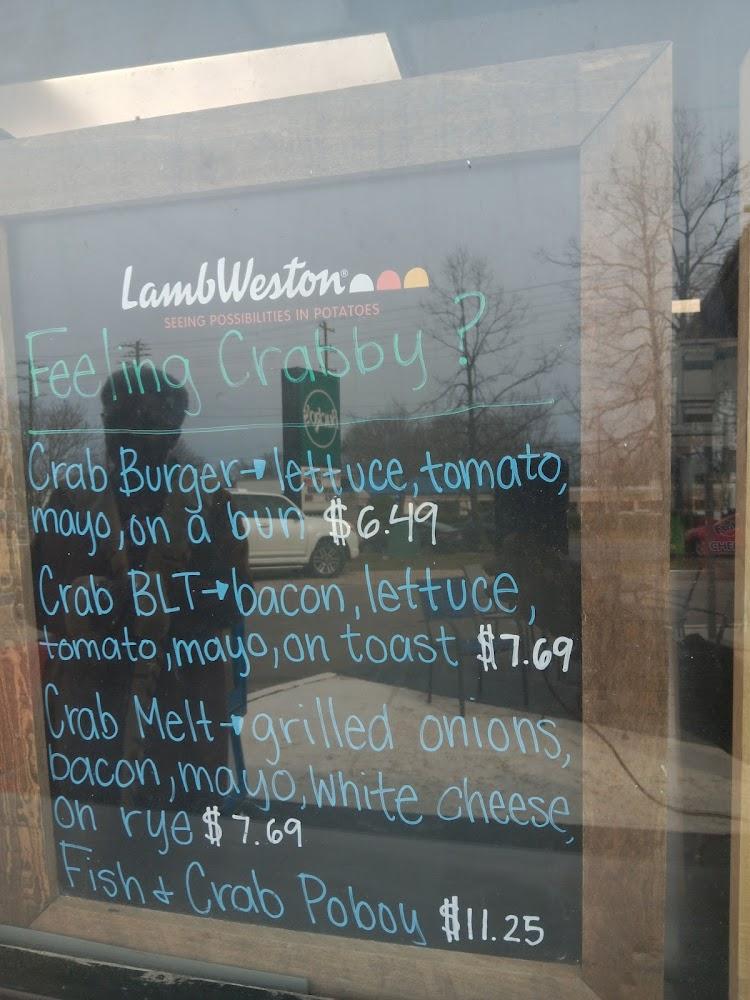 LambWeston®
SEEING POSSIBILITIES IN POTATOES
Feeling Crabby?
Crab Burger→lettuce, tomato,
mayo, on a bun $6.49
Crab BLT→bacon, lettuce,
tomato, mayo, on toast $7.69
Crab Melt→grilled onions,
bacon, mayo, white cheese,
on rye $7.69
Fish & Crab Poboy $11.25